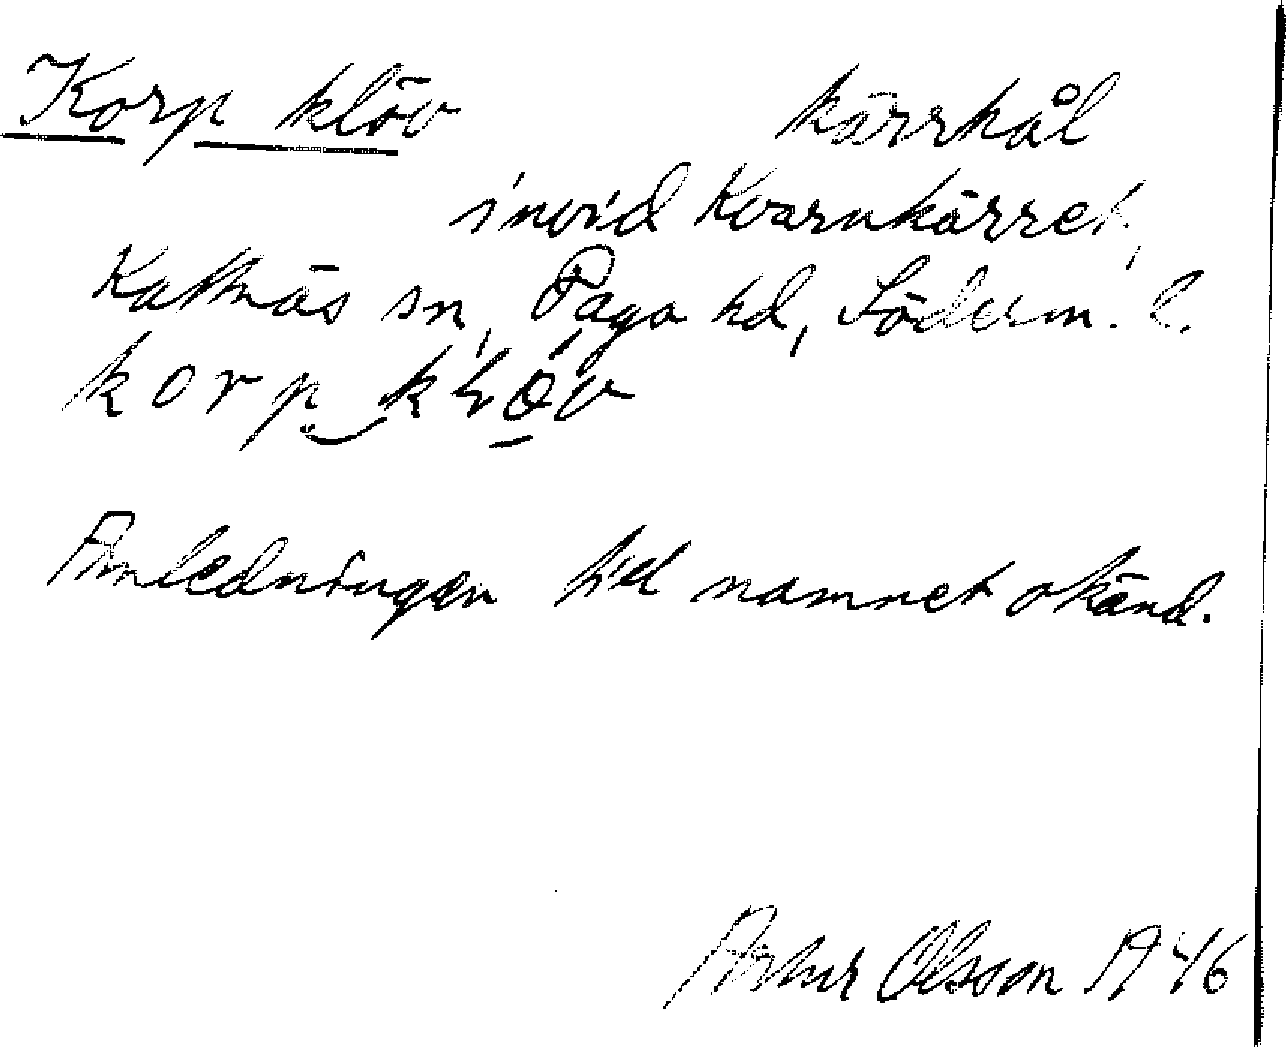 Korp klöv kärrhål
invid Kvarnkärret,
Kattnäs sn, Daga hd, Söderm. l.
korp klöv
Anledningen till namnet okänd.
Arthur Olsson 1946